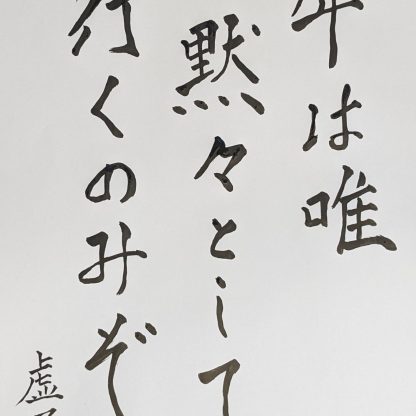 年は唯
黙々として
行くのみぞ
虚